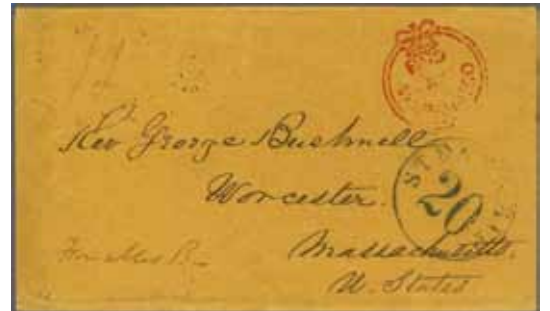 Rev George Bushnell
Worcester.
Massachusetts.
U. States
20